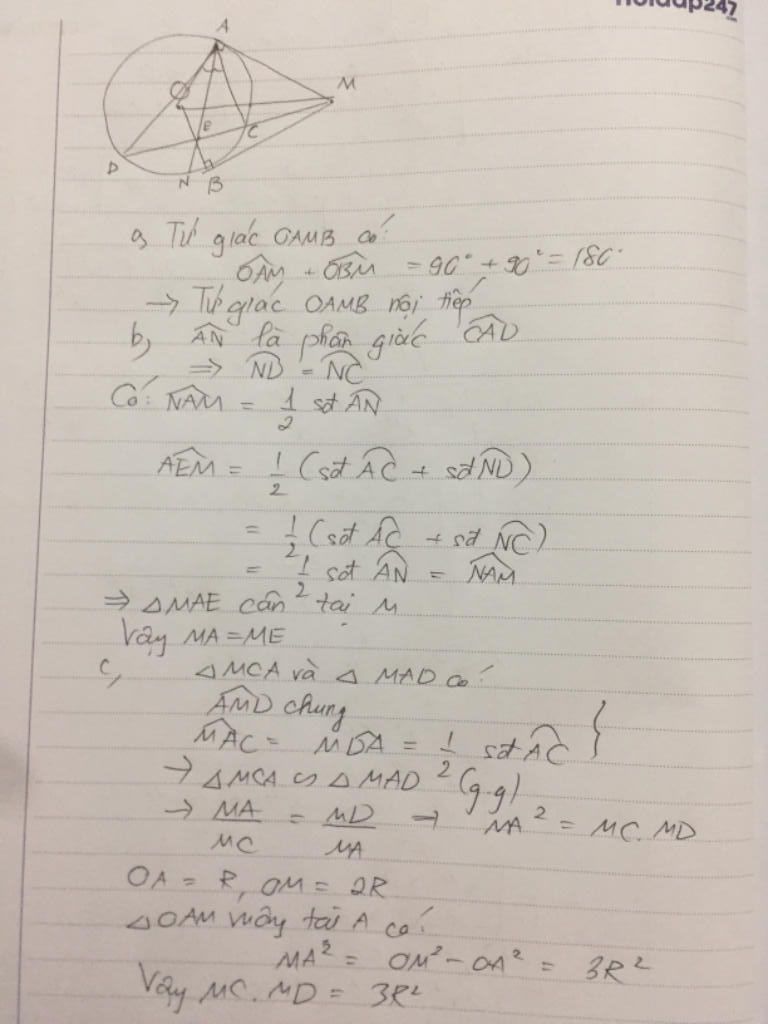 hoidap247
.com
A
M
E
C
D
N
B
a, Tứ giác OAMB có:
OAM + OBM = 90° + 90° = 180°
→ Tứ giác OAMB nội tiếp
b, AN là phân giác CAD
⇒ ND = NC
Có: NAM = 1/2 sđ AN
AEM = 1/2 (sđ AC + sđ ND)
= 1/2 (sđ AC + sđ NC)
= 1/2 sđ AN = NAM
⇒ △MAE cân tại M
Vậy MA = ME
c, △MCA và △MAD có:
AMD chung
MAC = MDA = 1/2 sđ AC }
→ △MCA ∽ △MAD (g.g)
→ MA/MC = MD/MA → MA² = MC.MD
OA = R, OM = 2R
△OAM vuông tại A có:
MA² = OM² - OA² = 3R²
Vậy MC.MD = 3R²